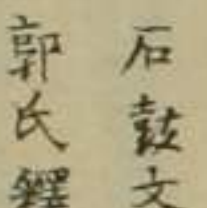 石鼓文
郭氏釋